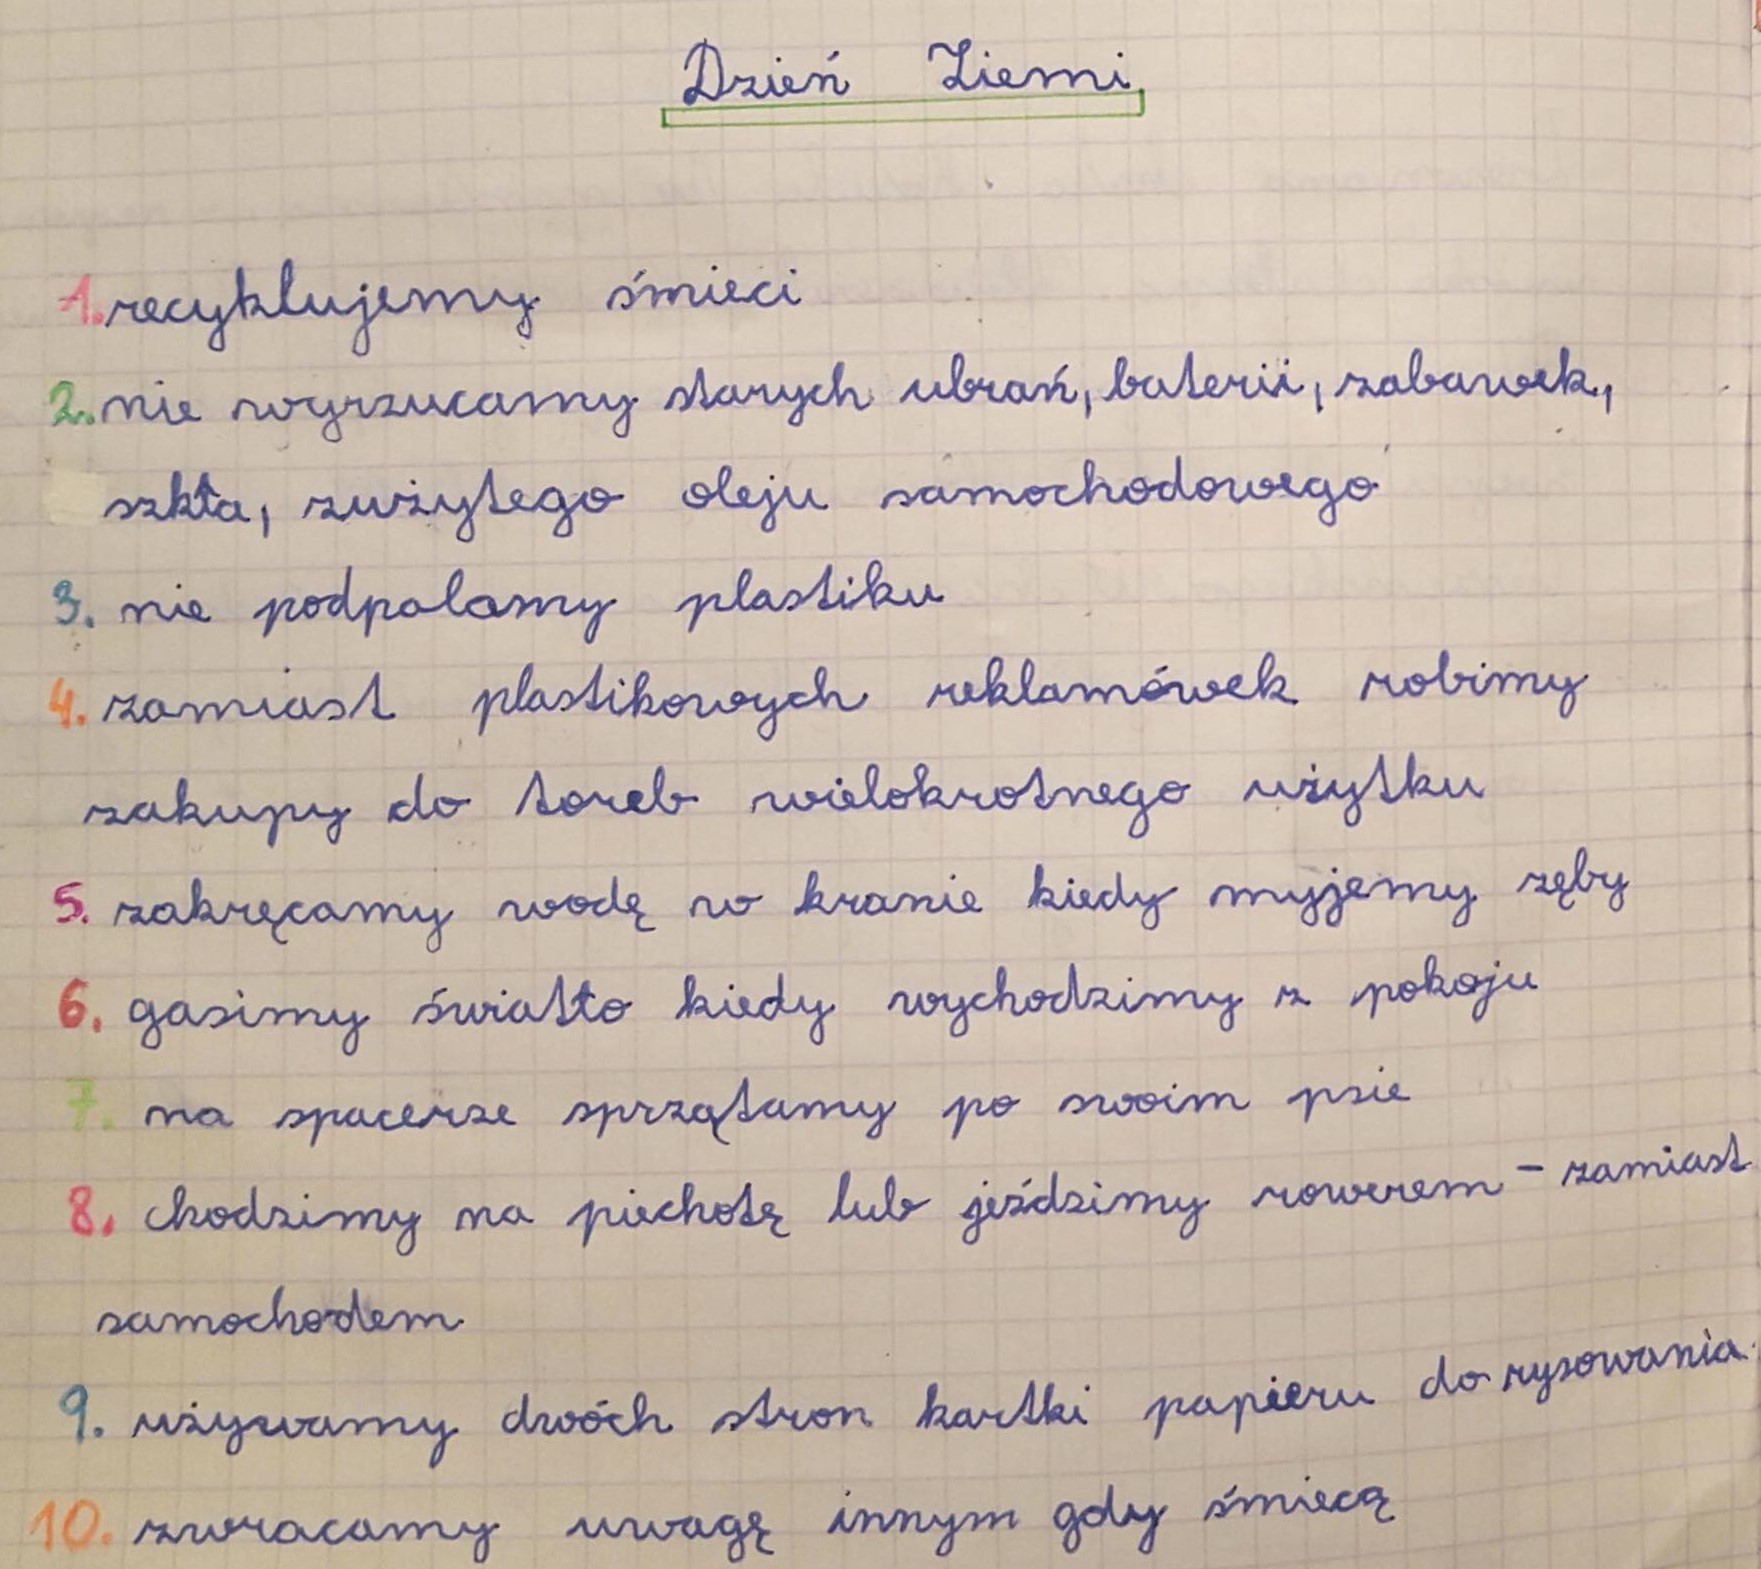 Dzień Ziemi
1. recyklujemy śmieci
2. nie wyrzucamy starych ubrań, baterii, zabawek,
szkła, zużytego oleju samochodowego
3. nie podpalamy plastiku
4. zamiast plastikowych reklamówek robimy
zakupy do toreb wielokrotnego użytku
5. zakręcamy wodę w kranie kiedy myjemy zęby
6. gasimy światło kiedy wychodzimy z pokoju
7. na spacerze sprzątamy po swoim psie
8. chodzimy na piechotę lub jeździmy rowerem - zamiast
samochodem
9. używamy dwóch stron kartki papieru do rysowania
10. zwracamy uwagę innym gdy śmiecą